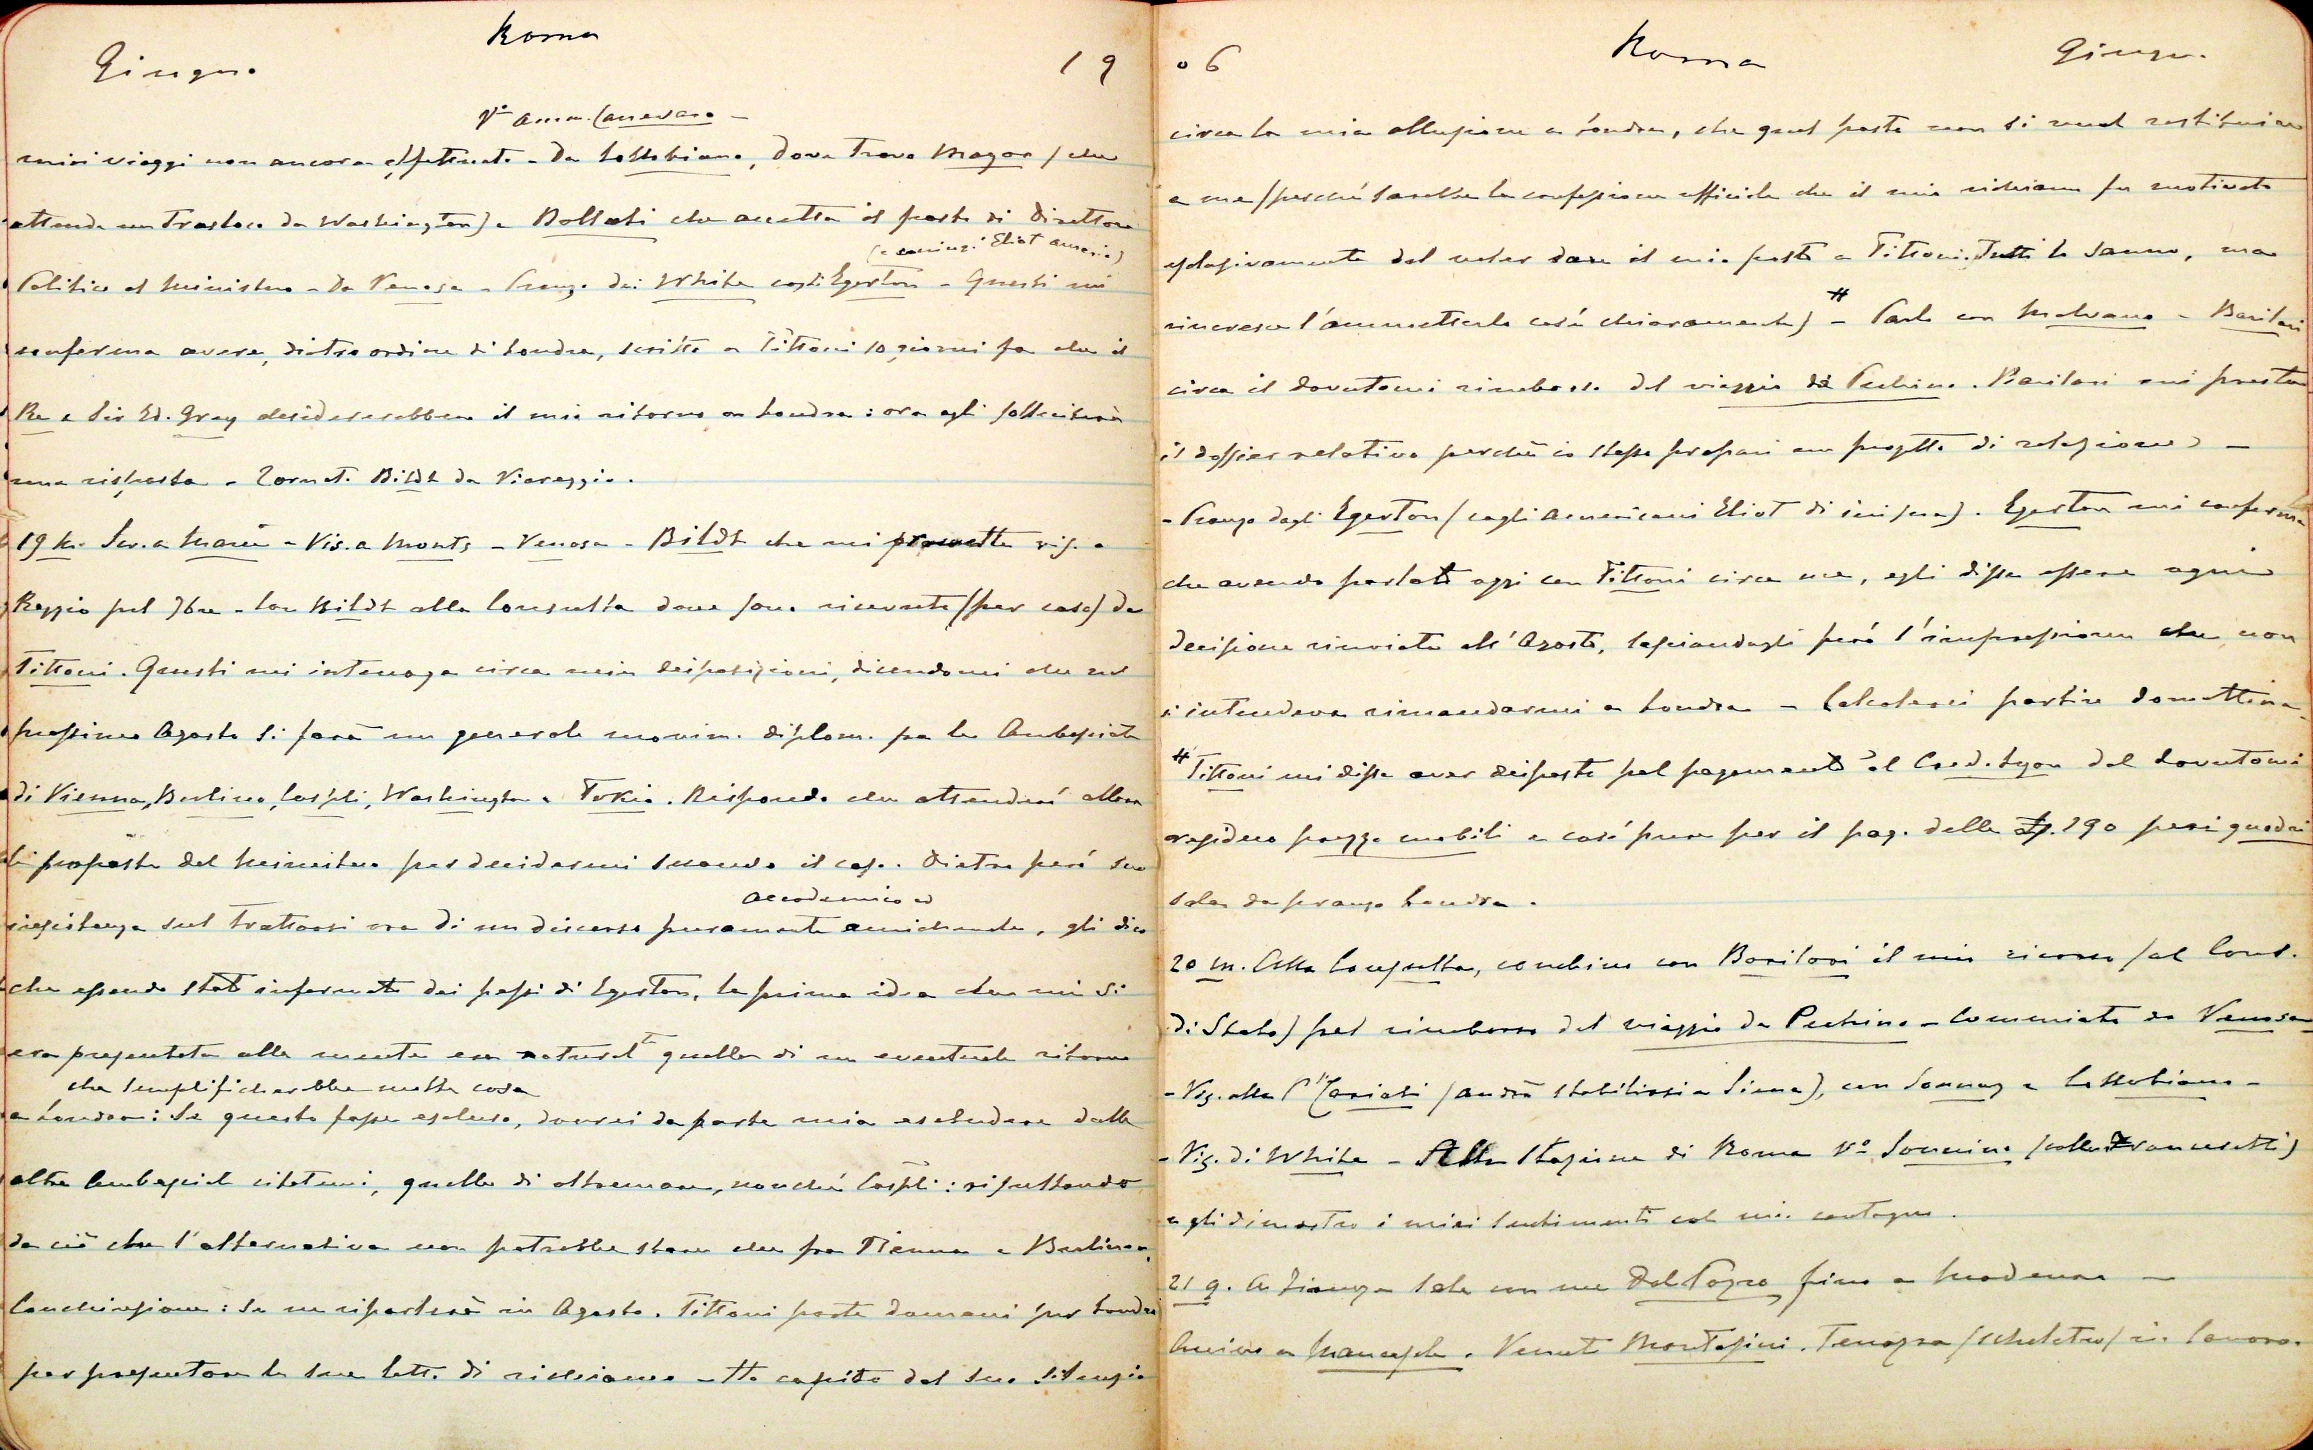 Roma
Giugno.
19
Vo Amm. Canevaro -
miei viaggi non ancora effettuato - Da Collobiano, dove trovo Mayor (che
attende un trasloco da Washington) e Bollati che accetta il posto di Direttore
(e coniugi Eliot americi)
Politico al Ministero - Da Venosa - Pranzo dai White cogli Egerton - Questi mi
conferma avere, dietro ordine di Londra, scritto a Tittoni 10 giorni fa che il
Re e Sir Ed. Grey desidererebbero il mio ritorno a Londra: ora egli solleciterà
una risposta - Tornat. Bildt da Viareggio.
19 - Vis. a Monts - Venosa - Bildt che mi promette vis. a
Reggio pel 7bre - Con Bildt alla Consulta dove sono ricevuto (per caso) da
Tittoni. Questi mi interroga circa mie disposizioni, dicendomi che nel
prossimo Agosto si farà un generale movim. diplom. fra le Ambasciate
di Vienna, Berlino, Cospli, Washington e Tokio. Rispondo che attenderò allora
la proposta del Ministro per decidermi secondo il caso. Dietro però sua
accademico ed
insistenza sul trattarsi ora di un discorso puramente amichevole, gli dico
che essendo stato informato dei passi di Egerton, la prima idea che mi si
era presentata alla mente era naturalte quella di un eventuale ritorno
che semplificherebbe molte cose
a Londra: Se questo fosse escluso, dovrei da parte mia escludere dalle
altre Ambasciate citatemi, quelle di oltremare, nonché Cospli: risultando
da ciò che l'alternativa non potrebbe stare che fra Vienna e Berlino.
Conchiusione: Se ne riparlerà in Agosto. Tittoni parte domani per Londra
per presentare le sue lett. di richiamo - Ho capito dal suo silenzio
06
Roma
Giugno.
circa la mia allusione a Londra, che quel posto non si vuol restituire
a me (perché sarebbe la confessione ufficiale che il mio richiamo fu motivato
esclusivamente dal voler dare il mio posto a Tittoni. Tutti lo sanno, ma
rincresce l'ammetterlo così chiaramente) # - Parlo con Malvano - Barilari
circa il dovutomi rimborso del viaggio di Pechino. Barilari mi presta
il dossier relativo perché io stesso prepari un progetto di relazione -
- Pranzo dagli Egerton (cogli Americani Eliot di ieri sera). Egerton mi conferma
che avendo parlato oggi con Tittoni circa me, egli disse essere ogni
decisione rinviata all'Agosto, lasciandogli però l'impressione che non
s'intendeva rimandarmi a Londra - partire domattina.
# Tittoni mi disse aver disposto pel pagamento al Cred. Lyon del dovutomi
residuo prezzo mobili e così pure per il pag. delle 190 pei quadri
sala da pranzo Londra.
20 m. Alla Consulta, combino con Barilari il mio ricorso (al Cons.
di Stato) pel rimborso del viaggio da Pechino - Commiato da Venosa
- Vis. alla (andrà stabilirsi a Siena), con Sonnaz e Collobiano -
- Vis. di White - Alla Stazione di Roma Vo Sonnino (colla Franceschetti)
e gli dimostro i miei sentimenti col mio contegno.
21 g. A Firenze sale con me Dal Pozzo fino a Modena -
Arrivo a Mancasale. Venut. Montasini. Terrazza (scheletro) in lavoro.